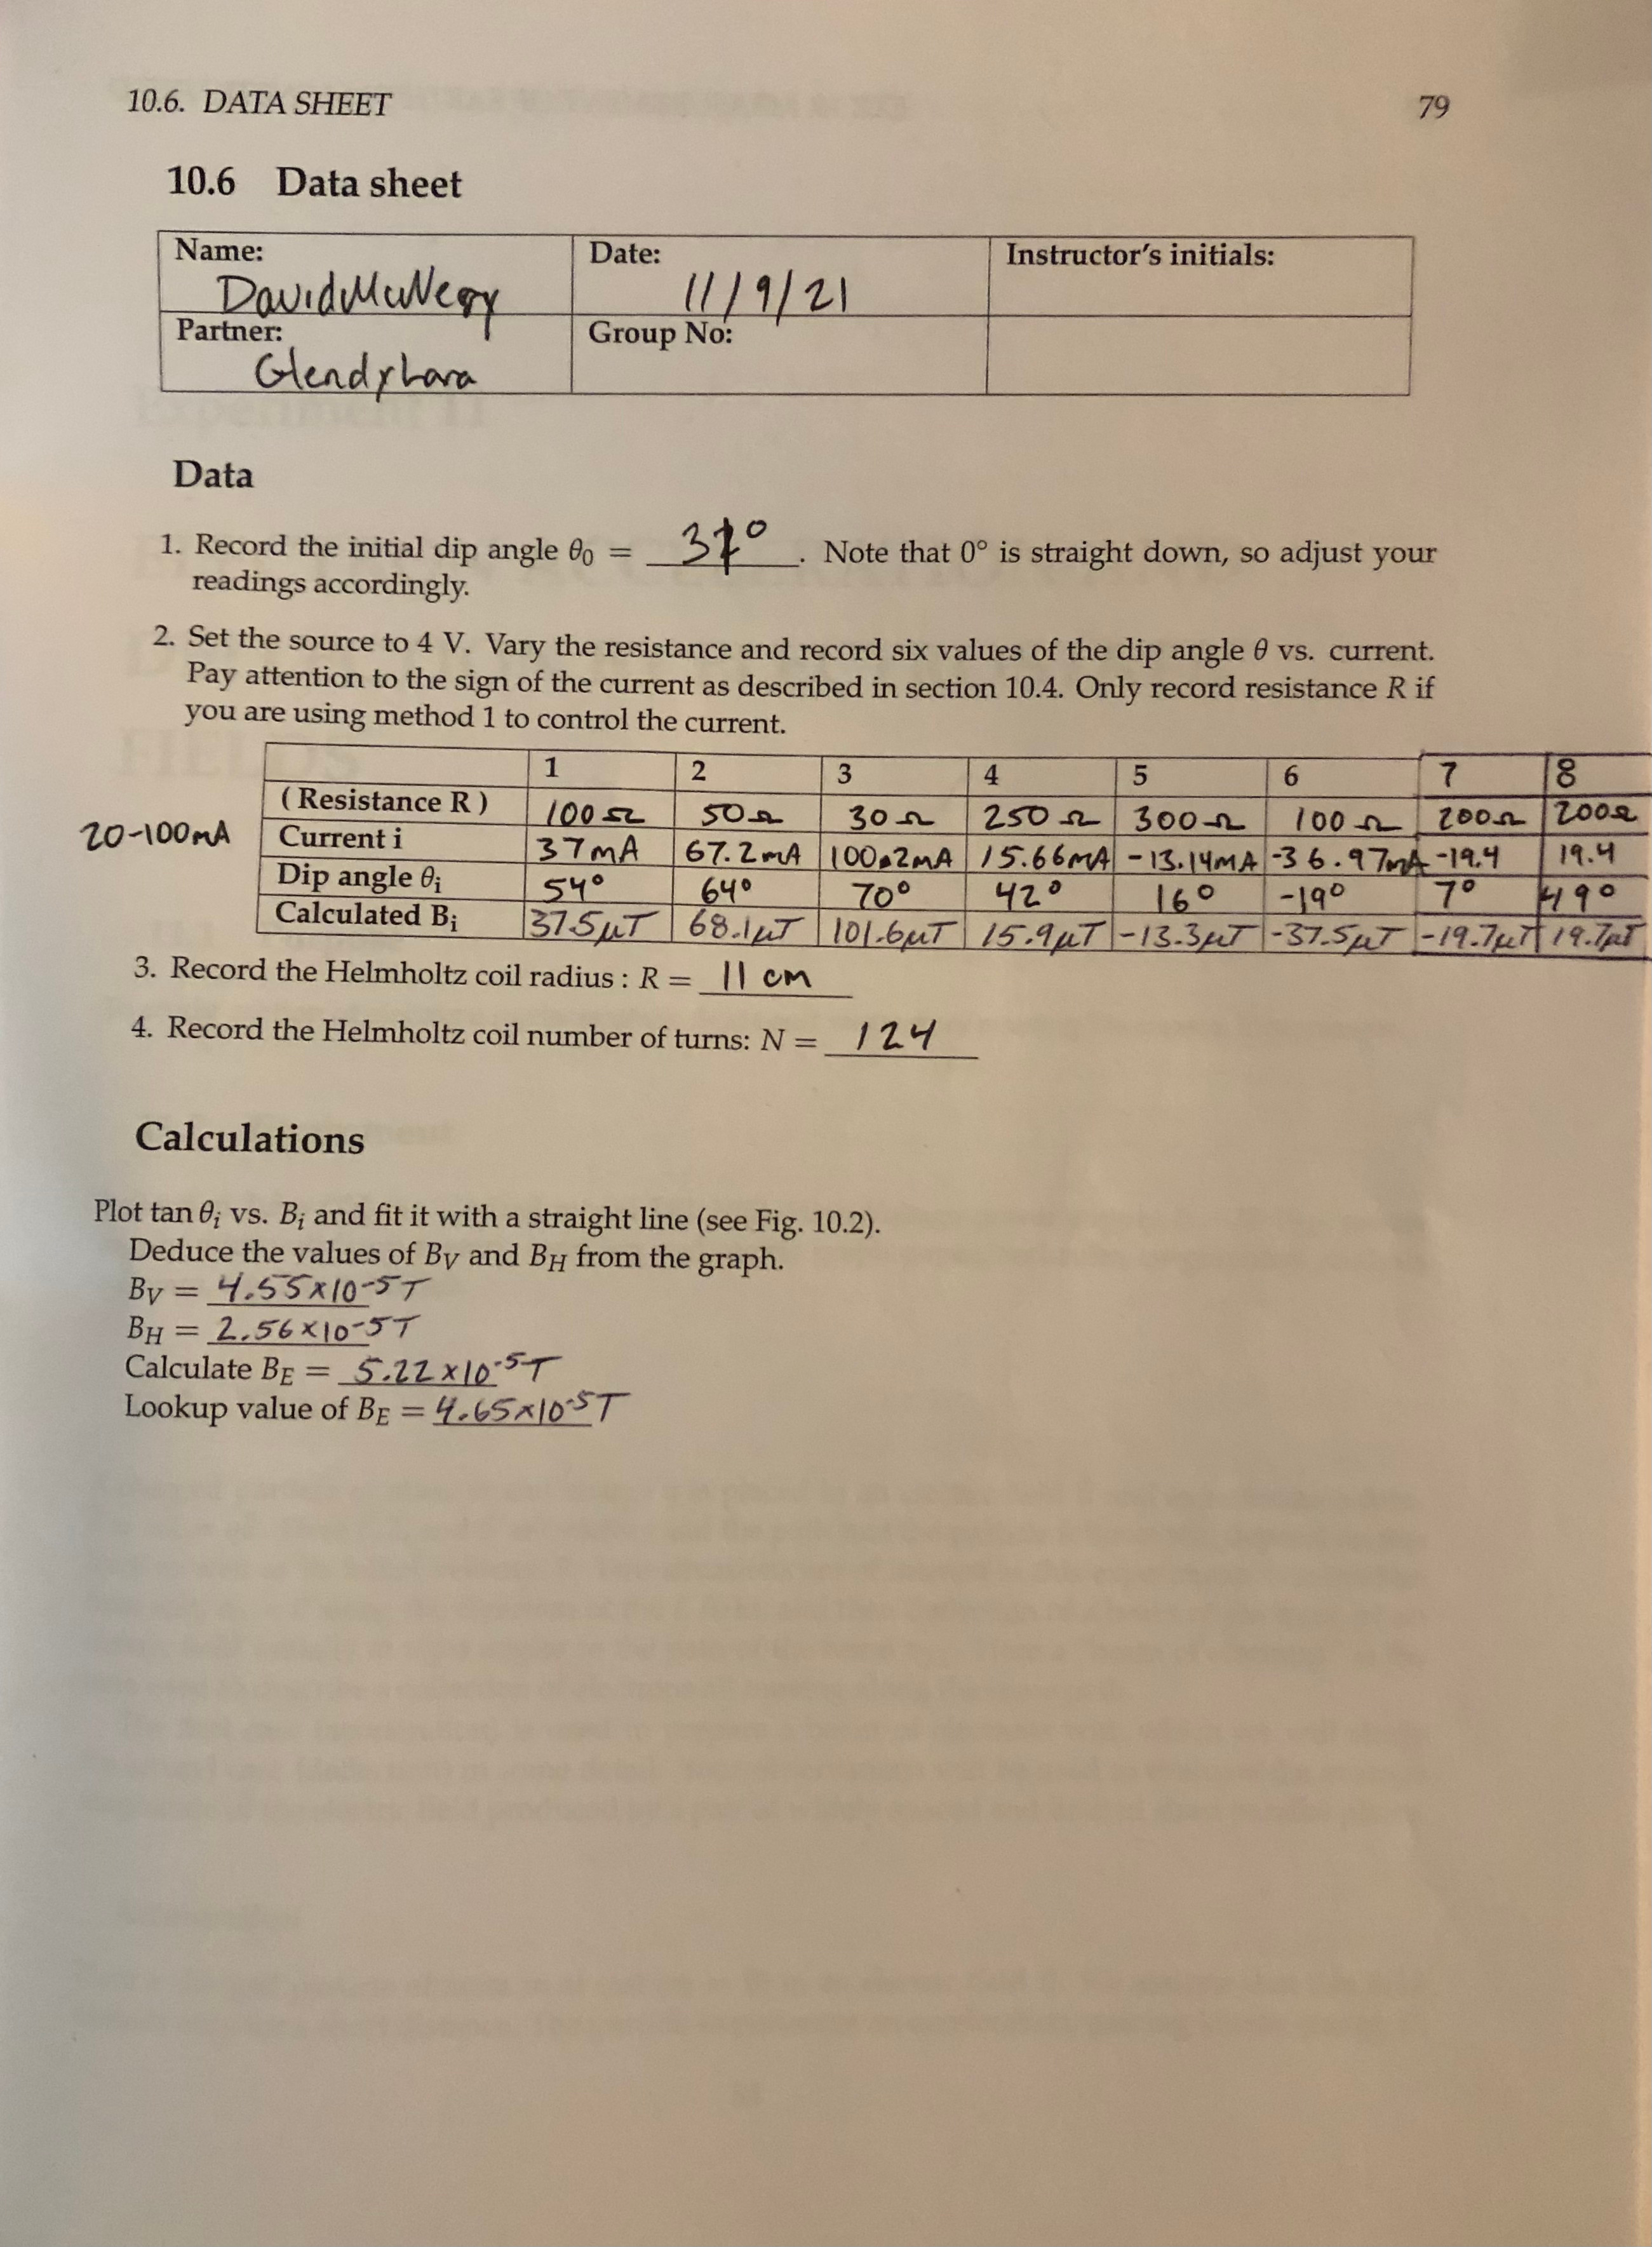 10.6. DATA SHEET 79
10.6 Data sheet
Name: Date: Instructor's initials:
David McNeary 11/9/21
Partner: Group No:
Glendy Lara
Data
1. Record the initial dip angle θ₀ = 31°. Note that 0° is straight down, so adjust your
readings accordingly.
2. Set the source to 4 V. Vary the resistance and record six values of the dip angle θ vs. current.
Pay attention to the sign of the current as described in section 10.4. Only record resistance R if
you are using method 1 to control the current.
1 2 3 4 5 6 7 8
( Resistance R ) 100Ω 50Ω 30Ω 250Ω 300Ω 100Ω 200Ω 200Ω
20-100mA Current i 37mA 67.2mA 100.2mA 15.66mA -13.14mA -36.97mA -19.4 19.4
Dip angle θᵢ 54° 64° 70° 42° 16° -19° 7° 49°
Calculated Bᵢ 37.5μT 68.1μT 101.6μT 15.9μT -13.3μT -37.5μT -19.7μT 19.7μT
3. Record the Helmholtz coil radius : R = 11 cm
4. Record the Helmholtz coil number of turns: N = 124
Calculations
Plot tan θᵢ vs. Bᵢ and fit it with a straight line (see Fig. 10.2).
Deduce the values of B_V and B_H from the graph.
B_V = 4.55×10⁻⁵T
B_H = 2.56×10⁻⁵T
Calculate B_E = 5.22×10⁻⁵T
Lookup value of B_E = 4.65×10⁻⁵T